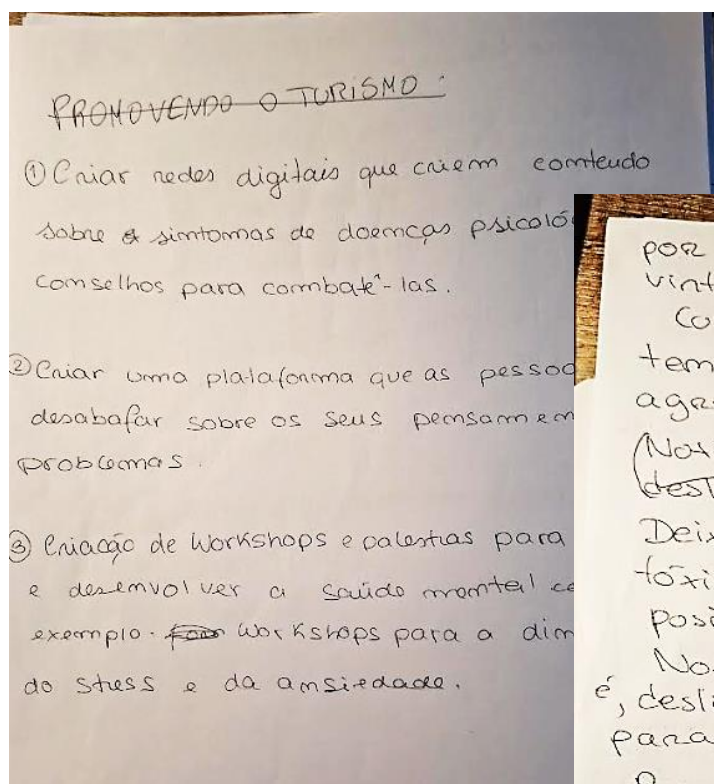 PROMOVENDO O TURISMO:
① Criar redes digitais que criem conteudo
sobre sintomas de doenças psicoló
conselhos para combatê-las.
② Criar uma plataforma que as pessoa
desabafar sobre os seus pensamen
problemas.
③ Criação de Workshops e palestras para
e desenvolver a saúde mental co
exemplo. Workshops para a dim
do stress e da ansiedade.
por
vint
Co
tem
agr
(Nos
Deix
tóxi
posi
No
é, desli
para